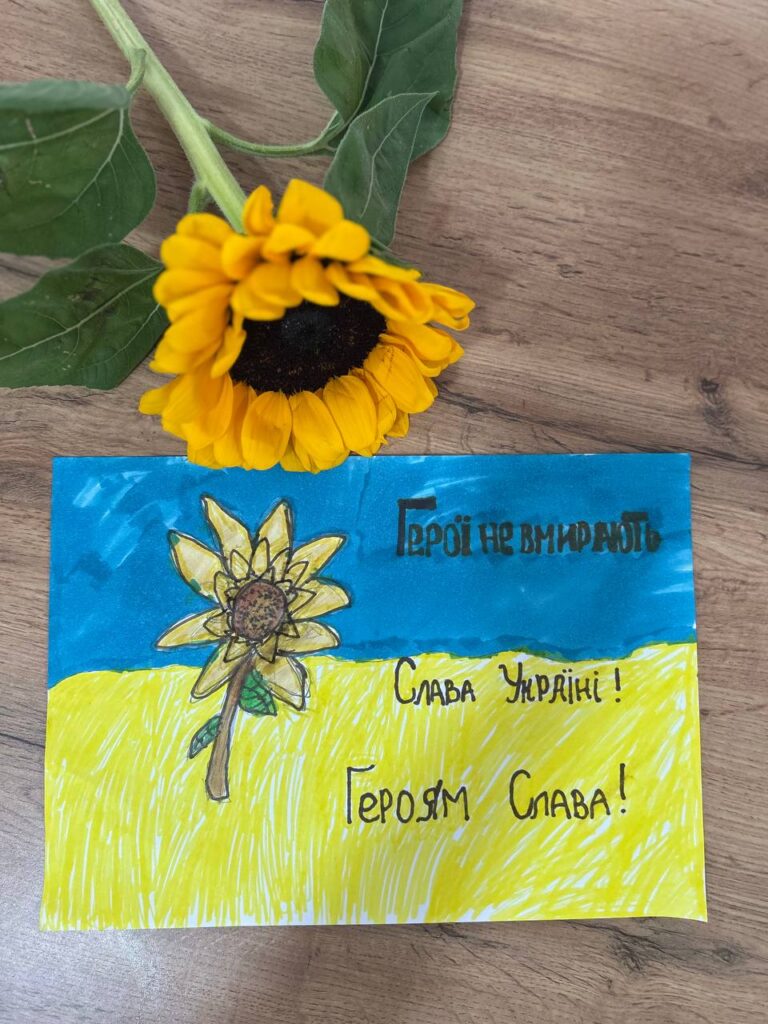 Герої не вмирають
Слава Україні!
Героям Слава!